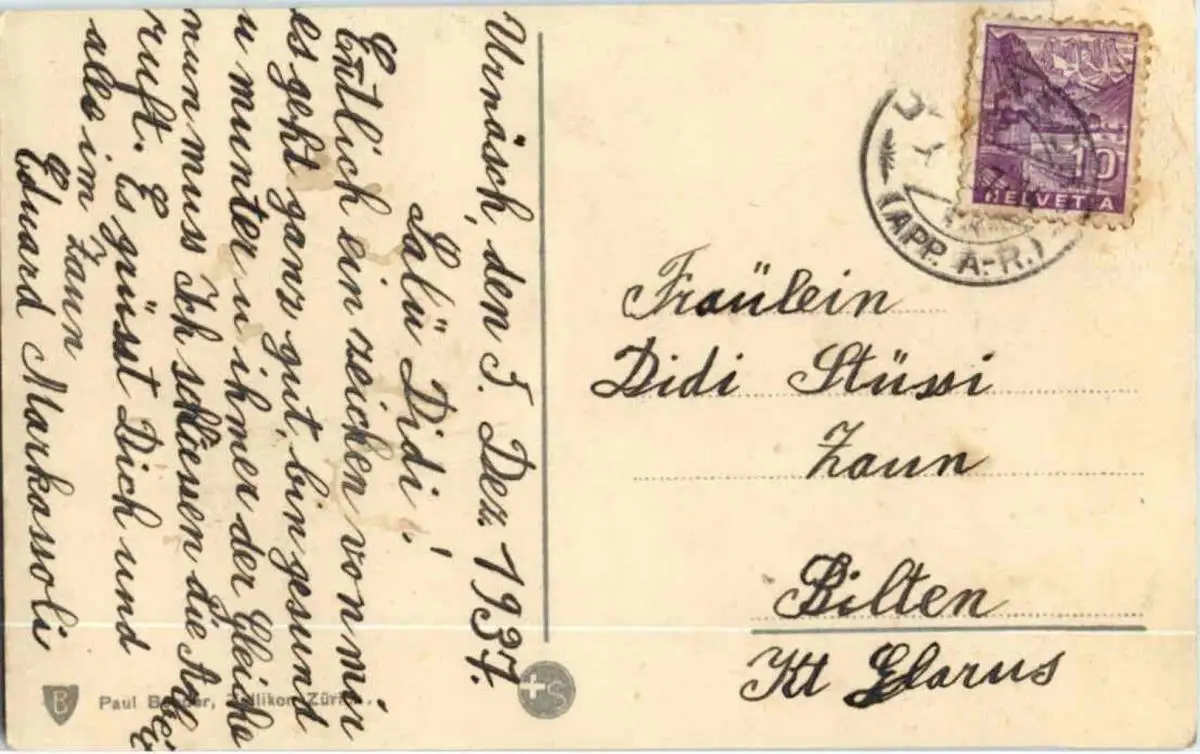 Urnäsch, den 5. Dez. 1937.
Salü Didi!
Endlich ein zeichen von mir
es geht ganz gut, bin gesund
u munter u ihmer der Gleiche
nun muss Ich schliessen die Arbeit
ruft. Es grüsst Dich und
alle im Zaun
Eduard Markassoli
10
HELVETIA
(APP. A.-R.)
Fraülein
Didi Stüssi
Zaun
Bilten
Kt Glarus
B
Paul Zollikon Zürich
S